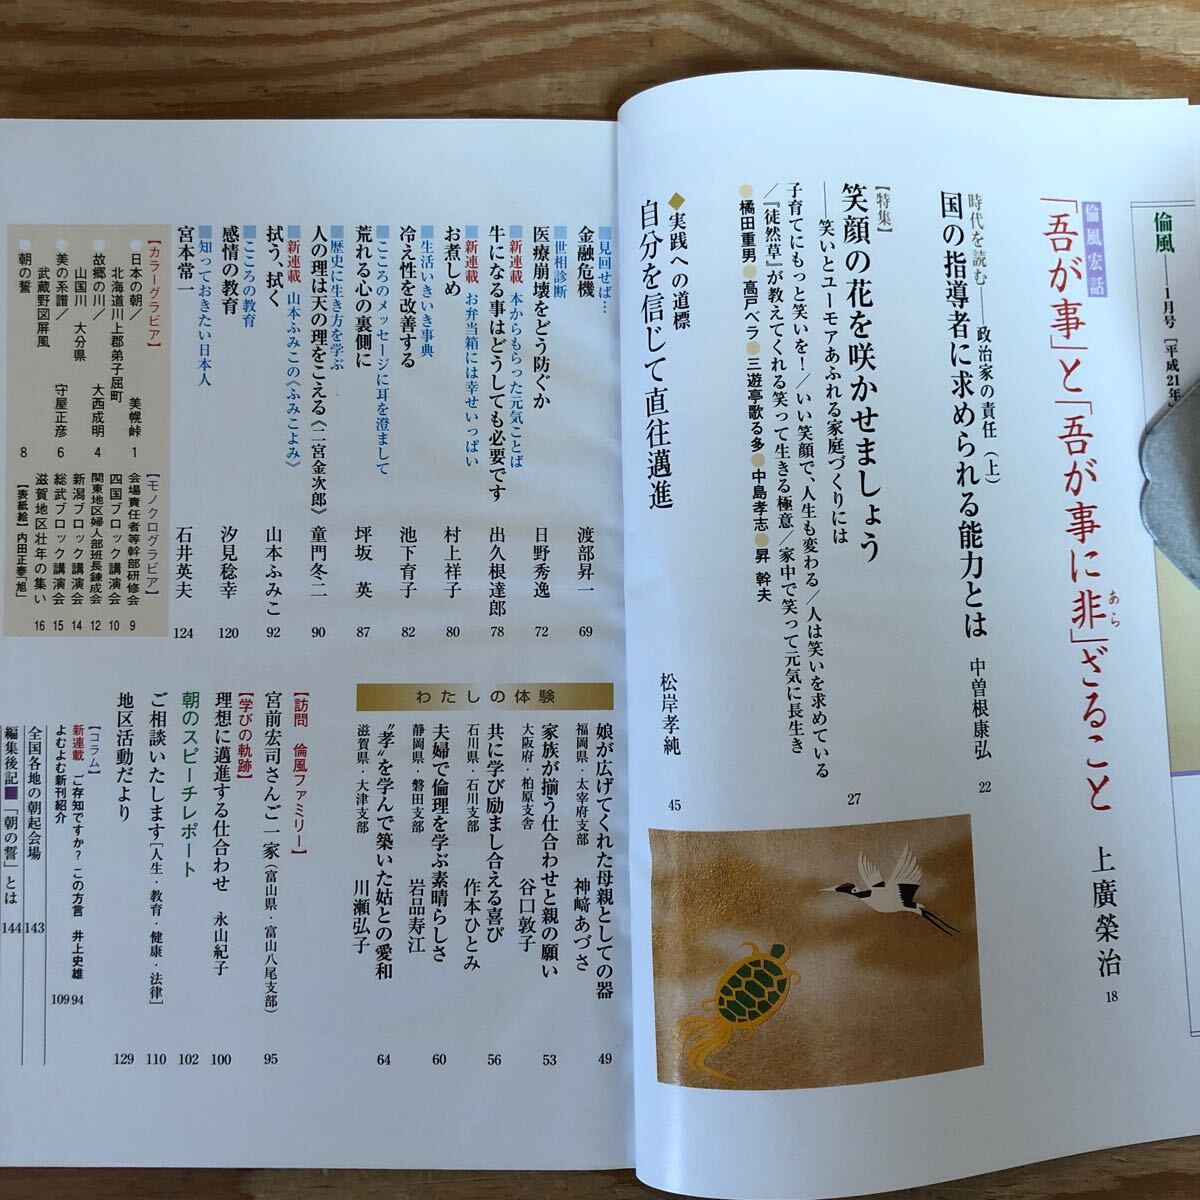 倫風――1月号［平成21年
倫風宏話
「吾が事」と「吾が事に非」ざること
あら
上廣榮治
18
時代を読む――政治家の責任（上）
国の指導者に求められる能力とは
中曽根康弘
22
【特集】
笑顔の花を咲かせましょう
――笑いとユーモアあふれる家庭づくりには
27
子育てにもっと笑いを！／いい笑顔で、人生も変わる／人は笑いを求めている
／『徒然草』が教えてくれる笑って生きる極意／家中で笑って元気に長生き
●橘田重男●高戸ベラ●三遊亭歌る多●中島孝志●昇 幹夫
◆実践への道標
自分を信じて直往邁進
松岸孝純
45
■見回せば…
金融危機
渡部昇一
69
■世相診断
医療崩壊をどう防ぐか
日野秀逸
72
■新連載 本からもらった元気ことば
牛になる事はどうしても必要です
出久根達郎
78
■新連載 お弁当箱には幸せいっぱい
お煮しめ
村上祥子
80
■生活いきいき事典
冷え性を改善する
池下育子
82
■こころのメッセージに耳を澄まして
荒れる心の裏側に
坪坂 英
87
■歴史に生き方を学ぶ
人の理は天の理をこえる《二宮金次郎》
童門冬二
90
■新連載 山本ふみこの《ふみこよみ》
拭う、拭く
山本ふみこ
92
■こころの教育
感情の教育
汐見稔幸
120
■知っておきたい日本人
宮本常一
石井英夫
124
【カラーグラビア】
●日本の朝／
北海道川上郡弟子屈町 美幌峠 1
●故郷の川／
山国川 大分県 大西成明 4
●美の系譜／
武蔵野図屏風 守屋正彦 6
●朝の誓 8
【モノクログラビア】
会場責任者等幹部研修会 9
四国ブロック講演会 10
関東地区婦人部班長錬成会 12
新潟ブロック講演会 14
総武ブロック講演会 15
滋賀地区壮年の集い 16
【表紙絵】内田正泰「旭」
わたしの体験
娘が広げてくれた母親としての器
福岡県・太宰府支部 神﨑あづさ
49
家族が揃う仕合わせと親の願い
大阪府・柏原支舎 谷口敦子
53
共に学び励まし合える喜び
石川県・石川支部 作本ひとみ
56
夫婦で倫理を学ぶ素晴らしさ
静岡県・磐田支部 岩品寿江
60
“孝”を学んで築いた姑との愛和
滋賀県・大津支部 川瀬弘子
64
【訪問 倫風ファミリー】
宮前宏司さんご一家（富山県・富山八尾支部）
95
【学びの軌跡】
理想に邁進する仕合わせ 永山紀子
100
朝のスピーチレポート
102
ご相談いたします［人生・教育・健康・法律］
110
地区活動だより
129
【コラム】
新連載 ご存知ですか？この方言 井上史雄 94
よむよむ新刊紹介 109
全国各地の朝起会場 143
編集後記■「朝の誓」とは 144